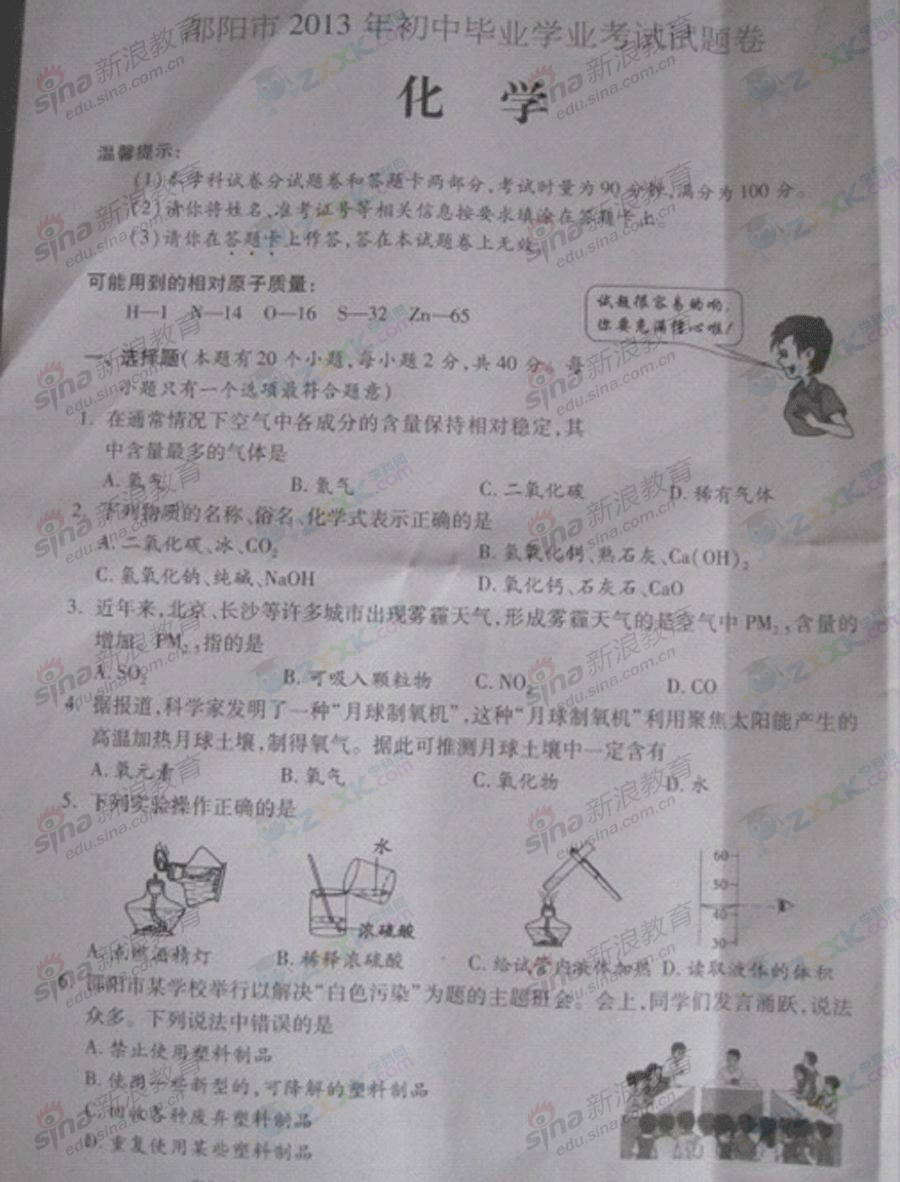 邵阳市 2013 年初中毕业学业考试试题卷
化 学
温馨提示：
(1)本学科试卷分试题卷和答题卡两部分,考试时量为90分钟,满分为100分。
(2)请你将姓名、准考证号等相关信息按要求填涂在答题卡上。
(3)请你在答题卡上作答,答在本试题卷上无效。
可能用到的相对原子质量：
H—1 N—14 O—16 S—32 Zn—65
试题很容易的哟,
你要充满信心啦!
一、选择题(本题有20个小题,每小题2分,共40分 每
小题只有一个选项最符合题意)
1. 在通常情况下空气中各成分的含量保持相对稳定,其
中含量最多的气体是
A. 氧气 B. 氮气 C. 二氧化碳 D. 稀有气体
2. 下列物质的名称、俗名、化学式表示正确的是
A. 二氧化碳、冰、CO₂ B. 氢氧化钙、熟石灰、Ca(OH)₂
C. 氢氧化钠、纯碱、NaOH D. 氧化钙、石灰石、CaO
3. 近年来,北京、长沙等许多城市出现雾霾天气,形成雾霾天气的是空气中PM₂.₅含量的
增加。PM₂.₅指的是
A. SO₂ B. 可吸入颗粒物 C. NO₂ D. CO
4. 据报道,科学家发明了一种“月球制氧机”,这种“月球制氧机”利用聚焦太阳能产生的
高温加热月球土壤,制得氧气。据此可推测月球土壤中一定含有
A. 氧元素 B. 氧气 C. 氧化物 D. 水
5. 下列实验操作正确的是
水
浓硫酸
60
50
40
30
A. 点燃酒精灯 B. 稀释浓硫酸 C. 给试管内液体加热 D. 读取液体的体积
6. 邵阳市某学校举行以解决“白色污染”为题的主题班会。会上,同学们发言涌跃,说法
众多。下列说法中错误的是
A. 禁止使用塑料制品
B. 使用一些新型的,可降解的塑料制品
C. 回收各种废弃塑料制品
D. 重复使用某些塑料制品